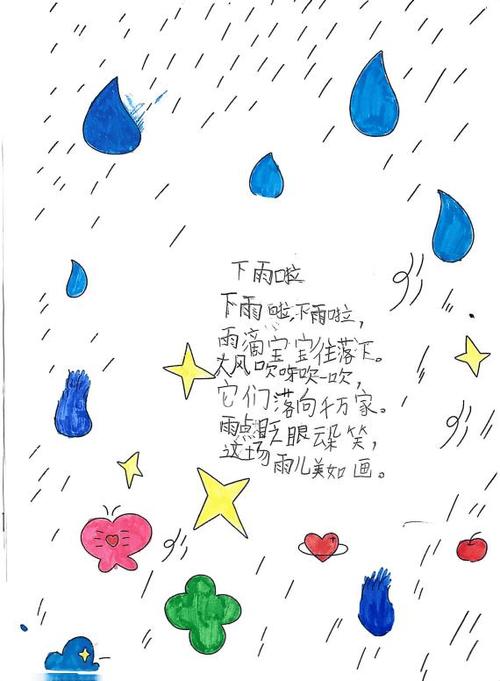 下雨啦
下雨啦,下雨啦,
雨滴宝宝往落下。
大风吹呀吹一吹,
它们落向千万家。
雨点眨眼朵笑,
这场雨儿美如画。